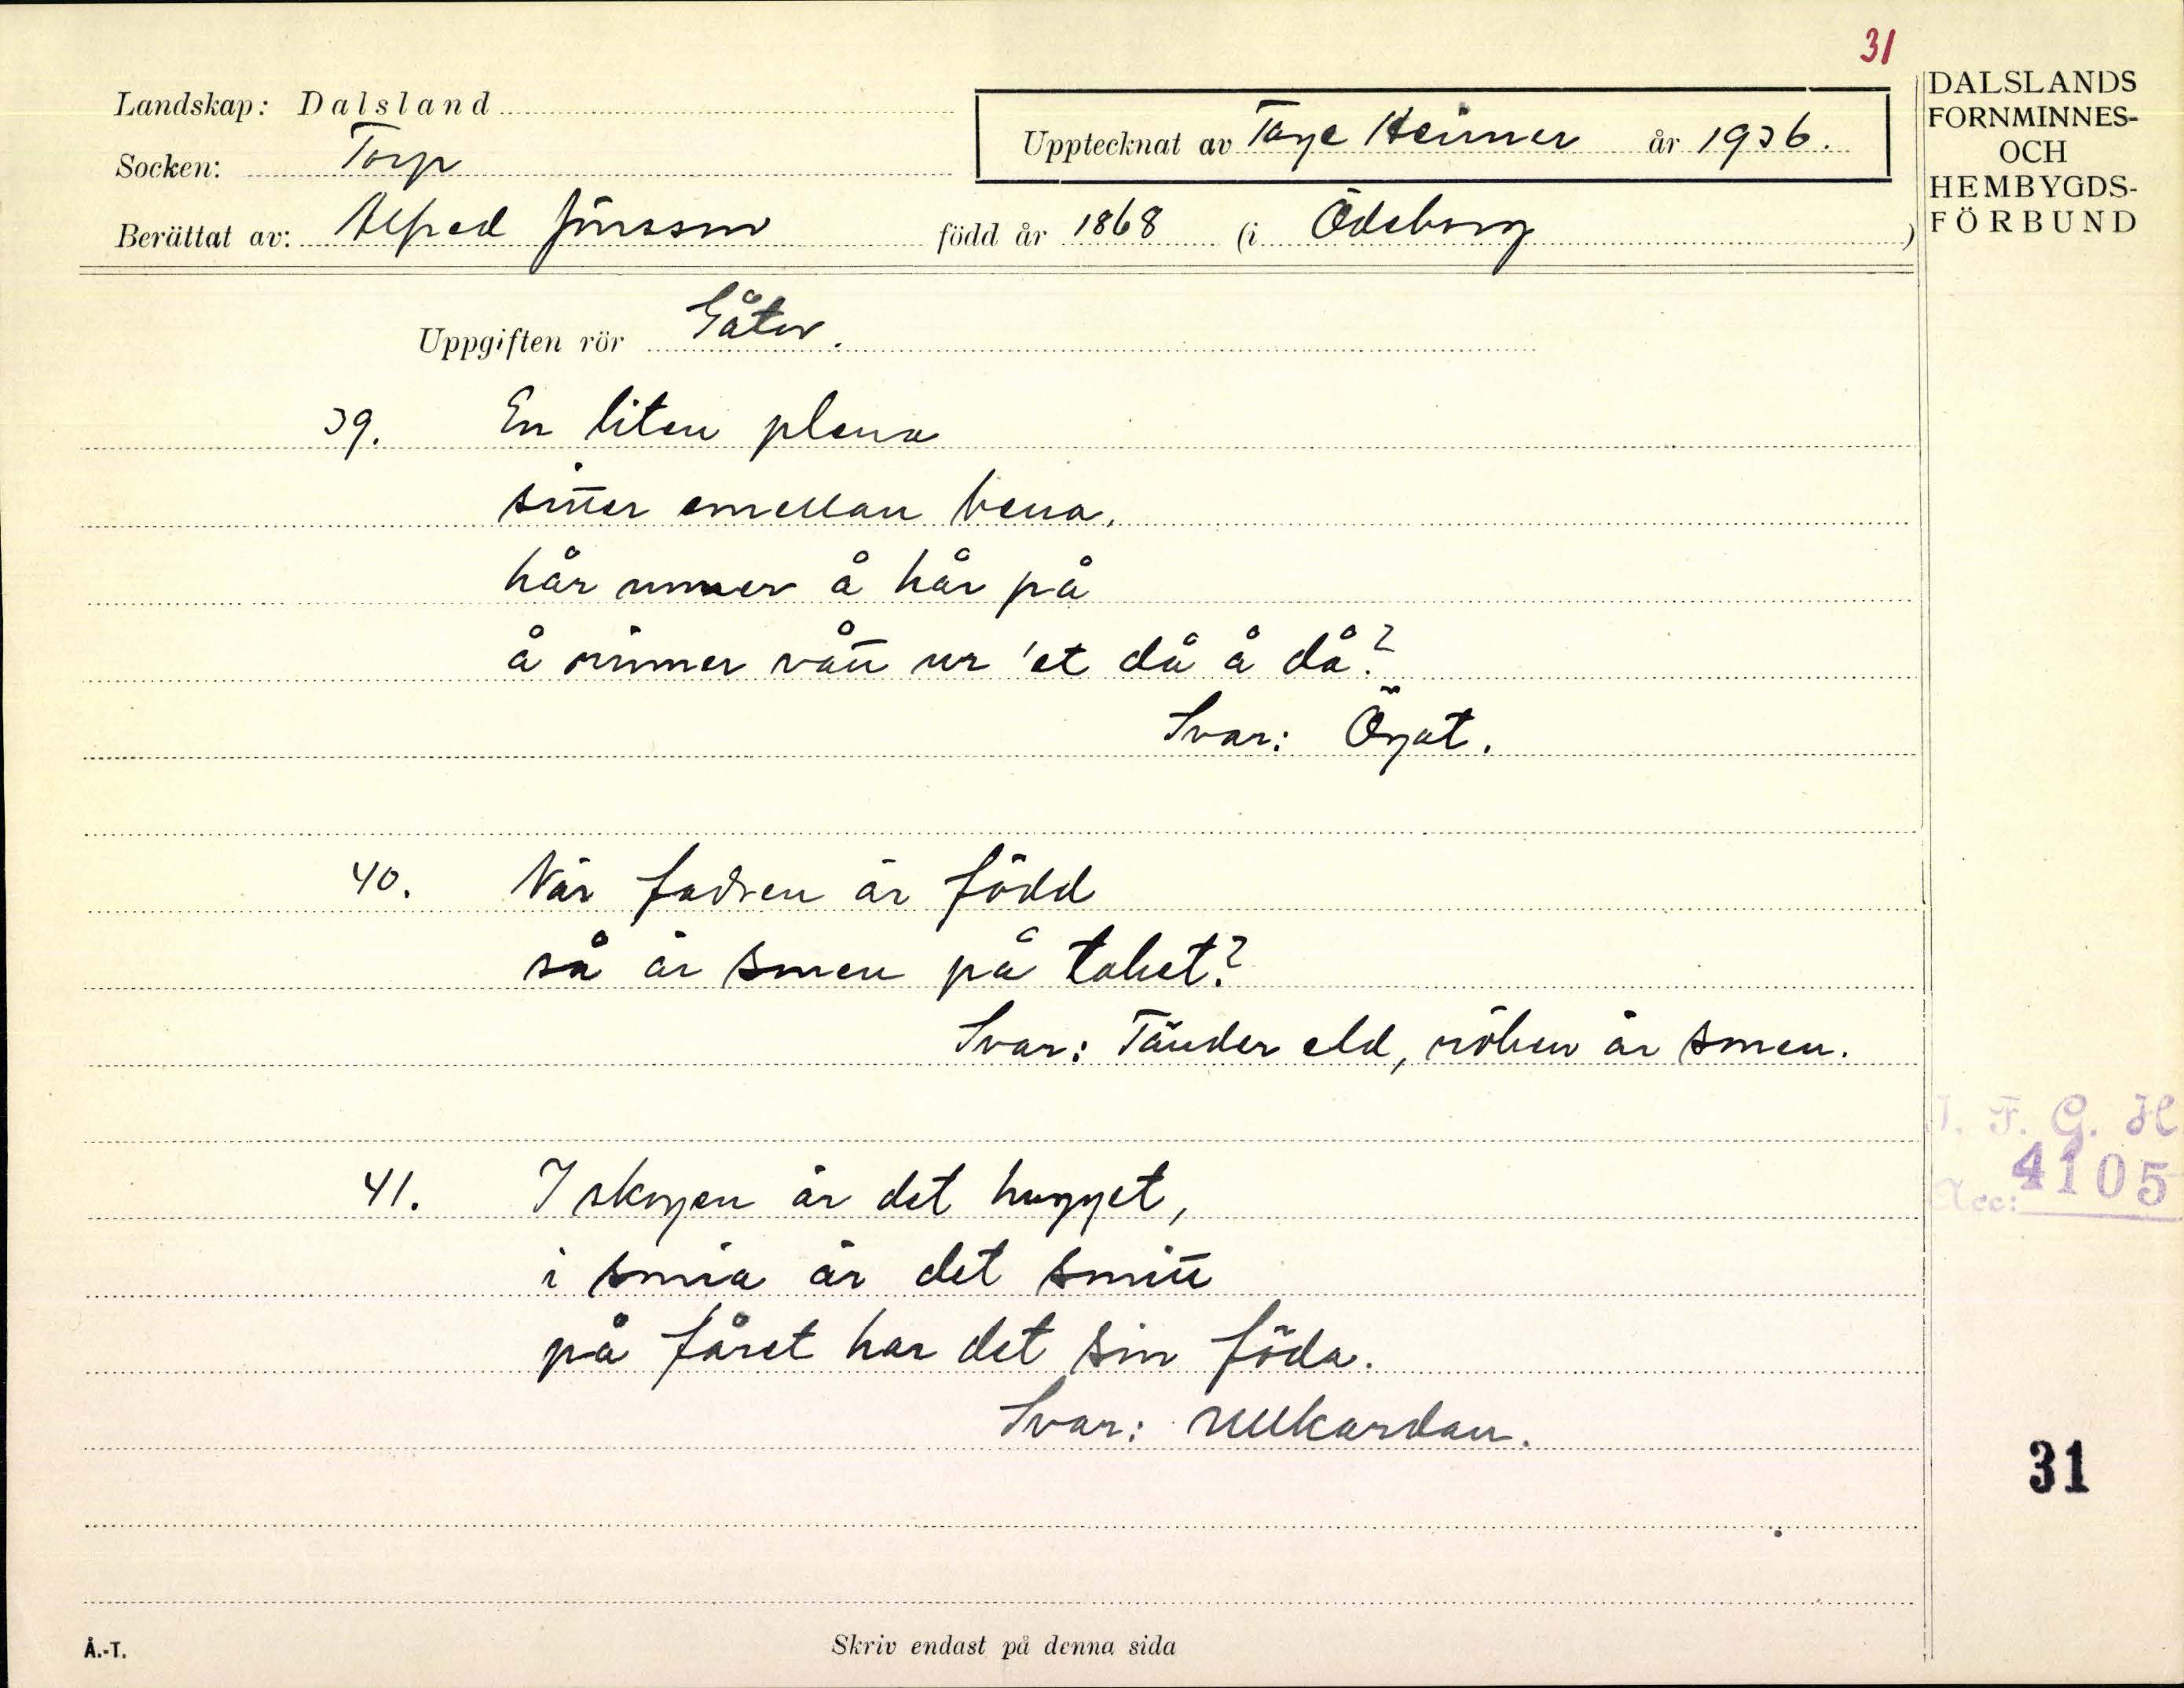 31
Landskap: Dalsland
Upptecknat av Tage Heimer år 1936.
Socken: Torp
Berättat av: Alfred Jönsson född år 1868 (i Ödeborg)
DALSLANDS
FORNMINNES-
OCH
HEMBYGDS-
FÖRBUND
Uppgiften rör Gåtor.
39. En liten plena
sitter emellan bena,
hår unner å hår på
å rinner vått ur 'et då å då?
Svar: Ögat.
40. När fadren är född
så är sonen på taket?
Svar: Tänder eld, röken är sonen.
41. I skogen är det hugget,
i smia är det smitt
på fåret har det sin föda.
Svar: ullkardan.
I. F. G. H
Acc: 4105
31
Å.-T.
Skriv endast på denna sida